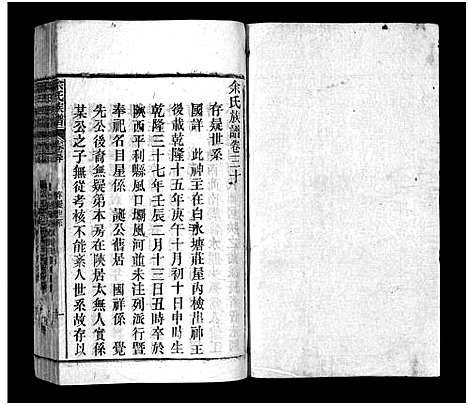 余氏族譜卷三十
存疑世系
國詳　此神主在白水塘莊屋內檢出神主
後載乾隆十五年庚午十月初十日申時生
乾隆三十七年壬辰二月十三日丑時卒於
陝西平利縣風口壩風河並未注列派行暨
奉祀名目星係　譔公舊居　國祥係　覺
先公後裔無疑第本房在陝居太無從實係
某公之子無從考核不能亲入世系故存以
余氏族譜